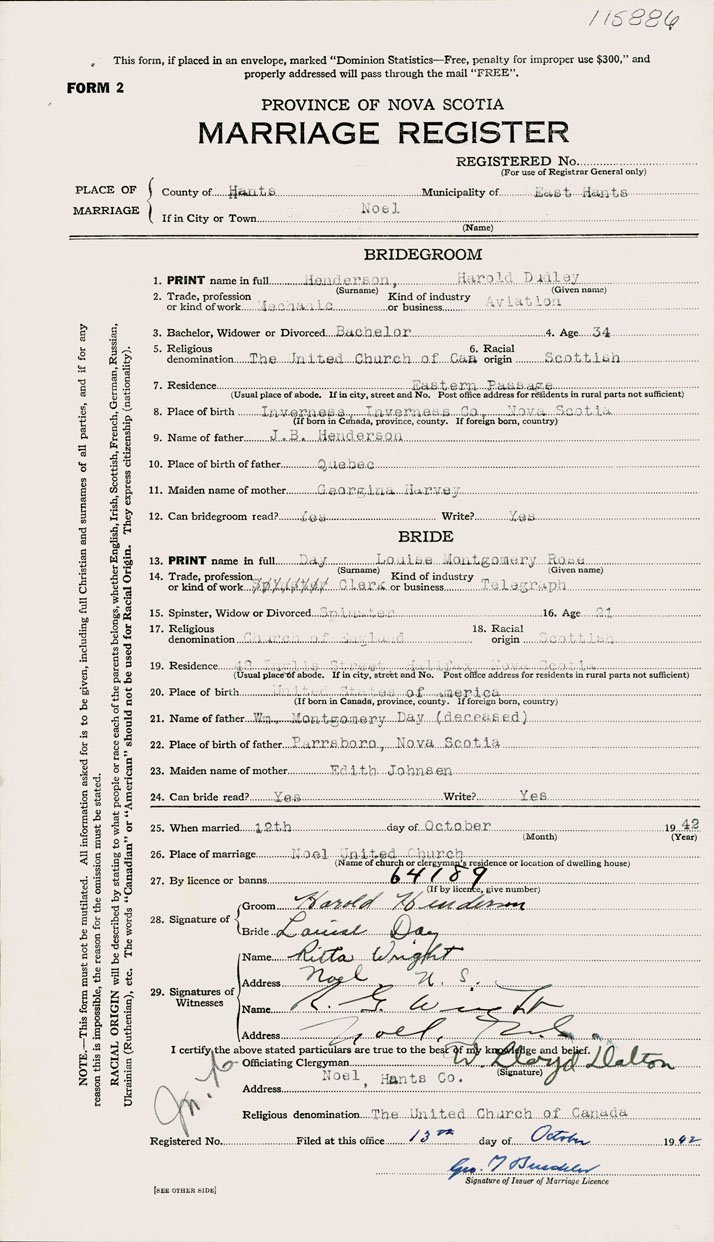 115886
This form, if placed in an envelope, marked "Dominion Statistics—Free, penalty for improper use $300," and
properly addressed will pass through the mail "FREE".
FORM 2
PROVINCE OF NOVA SCOTIA
MARRIAGE REGISTER
REGISTERED No.
(For use of Registrar General only)
PLACE OF MARRIAGE
County of Hants Municipality of East Hants
If in City or Town Noel
(Name)
BRIDEGROOM
1. PRINT name in full Henderson, Harold Dudley
(Surname) (Given name)
2. Trade, profession or kind of work Mechanic Kind of industry or business Aviation
3. Bachelor, Widower or Divorced Bachelor 4. Age 34
5. Religious denomination The United Church of Can 6. Racial origin Scottish
7. Residence Eastern Passage
(Usual place of abode. If in city, street and No. Post office address for residents in rural parts not sufficient)
8. Place of birth Inverness, Inverness Co., Nova Scotia
(If born in Canada, province, county. If foreign born, country)
9. Name of father J.B. Henderson
10. Place of birth of father Quebec
11. Maiden name of mother Georgina Harvey
12. Can bridegroom read? Yes Write? Yes
BRIDE
13. PRINT name in full Day Louise Montgomery Rose
(Surname) (Given name)
14. Trade, profession or kind of work Clerk Kind of industry or business Telegraph
15. Spinster, Widow or Divorced Spinster 16. Age 21
17. Religious denomination Church of England 18. Racial origin Scottish
19. Residence Inglis Street, Halifax, Nova Scotia
(Usual place of abode. If in city, street and No. Post office address for residents in rural parts not sufficient)
20. Place of birth United States of America
(If born in Canada, province, county. If foreign born, country)
21. Name of father Wm. Montgomery Day (deceased)
22. Place of birth of father Parrsboro, Nova Scotia
23. Maiden name of mother Edith Johnsen
24. Can bride read? Yes Write? Yes
25. When married 12th day of October 1942
(Month) (Year)
26. Place of marriage Noel United Church
(Name of church or clergyman's residence or location of dwelling house)
27. By licence or banns 64189
(If by licence, give number)
28. Signature of
Groom Harold Henderson
Bride Louise Day
29. Signatures of Witnesses
Name Ritta Wright
Address Noel N.S.
Name R. G. Wright
Address Noel, N.S.
I certify the above stated particulars are true to the best of my knowledge and belief.
Officiating Clergyman W. Lloyd Dalton
(Signature)
Address Noel, Hants Co.
Religious denomination The United Church of Canada
Registered No. Filed at this office 13th day of October 1942
Geo. T
Signature of Issuer of Marriage Licence
[SEE OTHER SIDE]
NOTE.—This form must not be mutilated. All information asked for is to be given, including full Christian and surnames of all parties, and if for any
reason this is impossible, the reason for the omission must be stated.
RACIAL ORIGIN will be described by stating to what people or race each of the parents belongs, whether English, Irish, Scottish, French, German, Russian,
Ukrainian (Ruthenian), etc. The words "Canadian" or "American" should not be used for Racial Origin. They express citizenship (nationality).